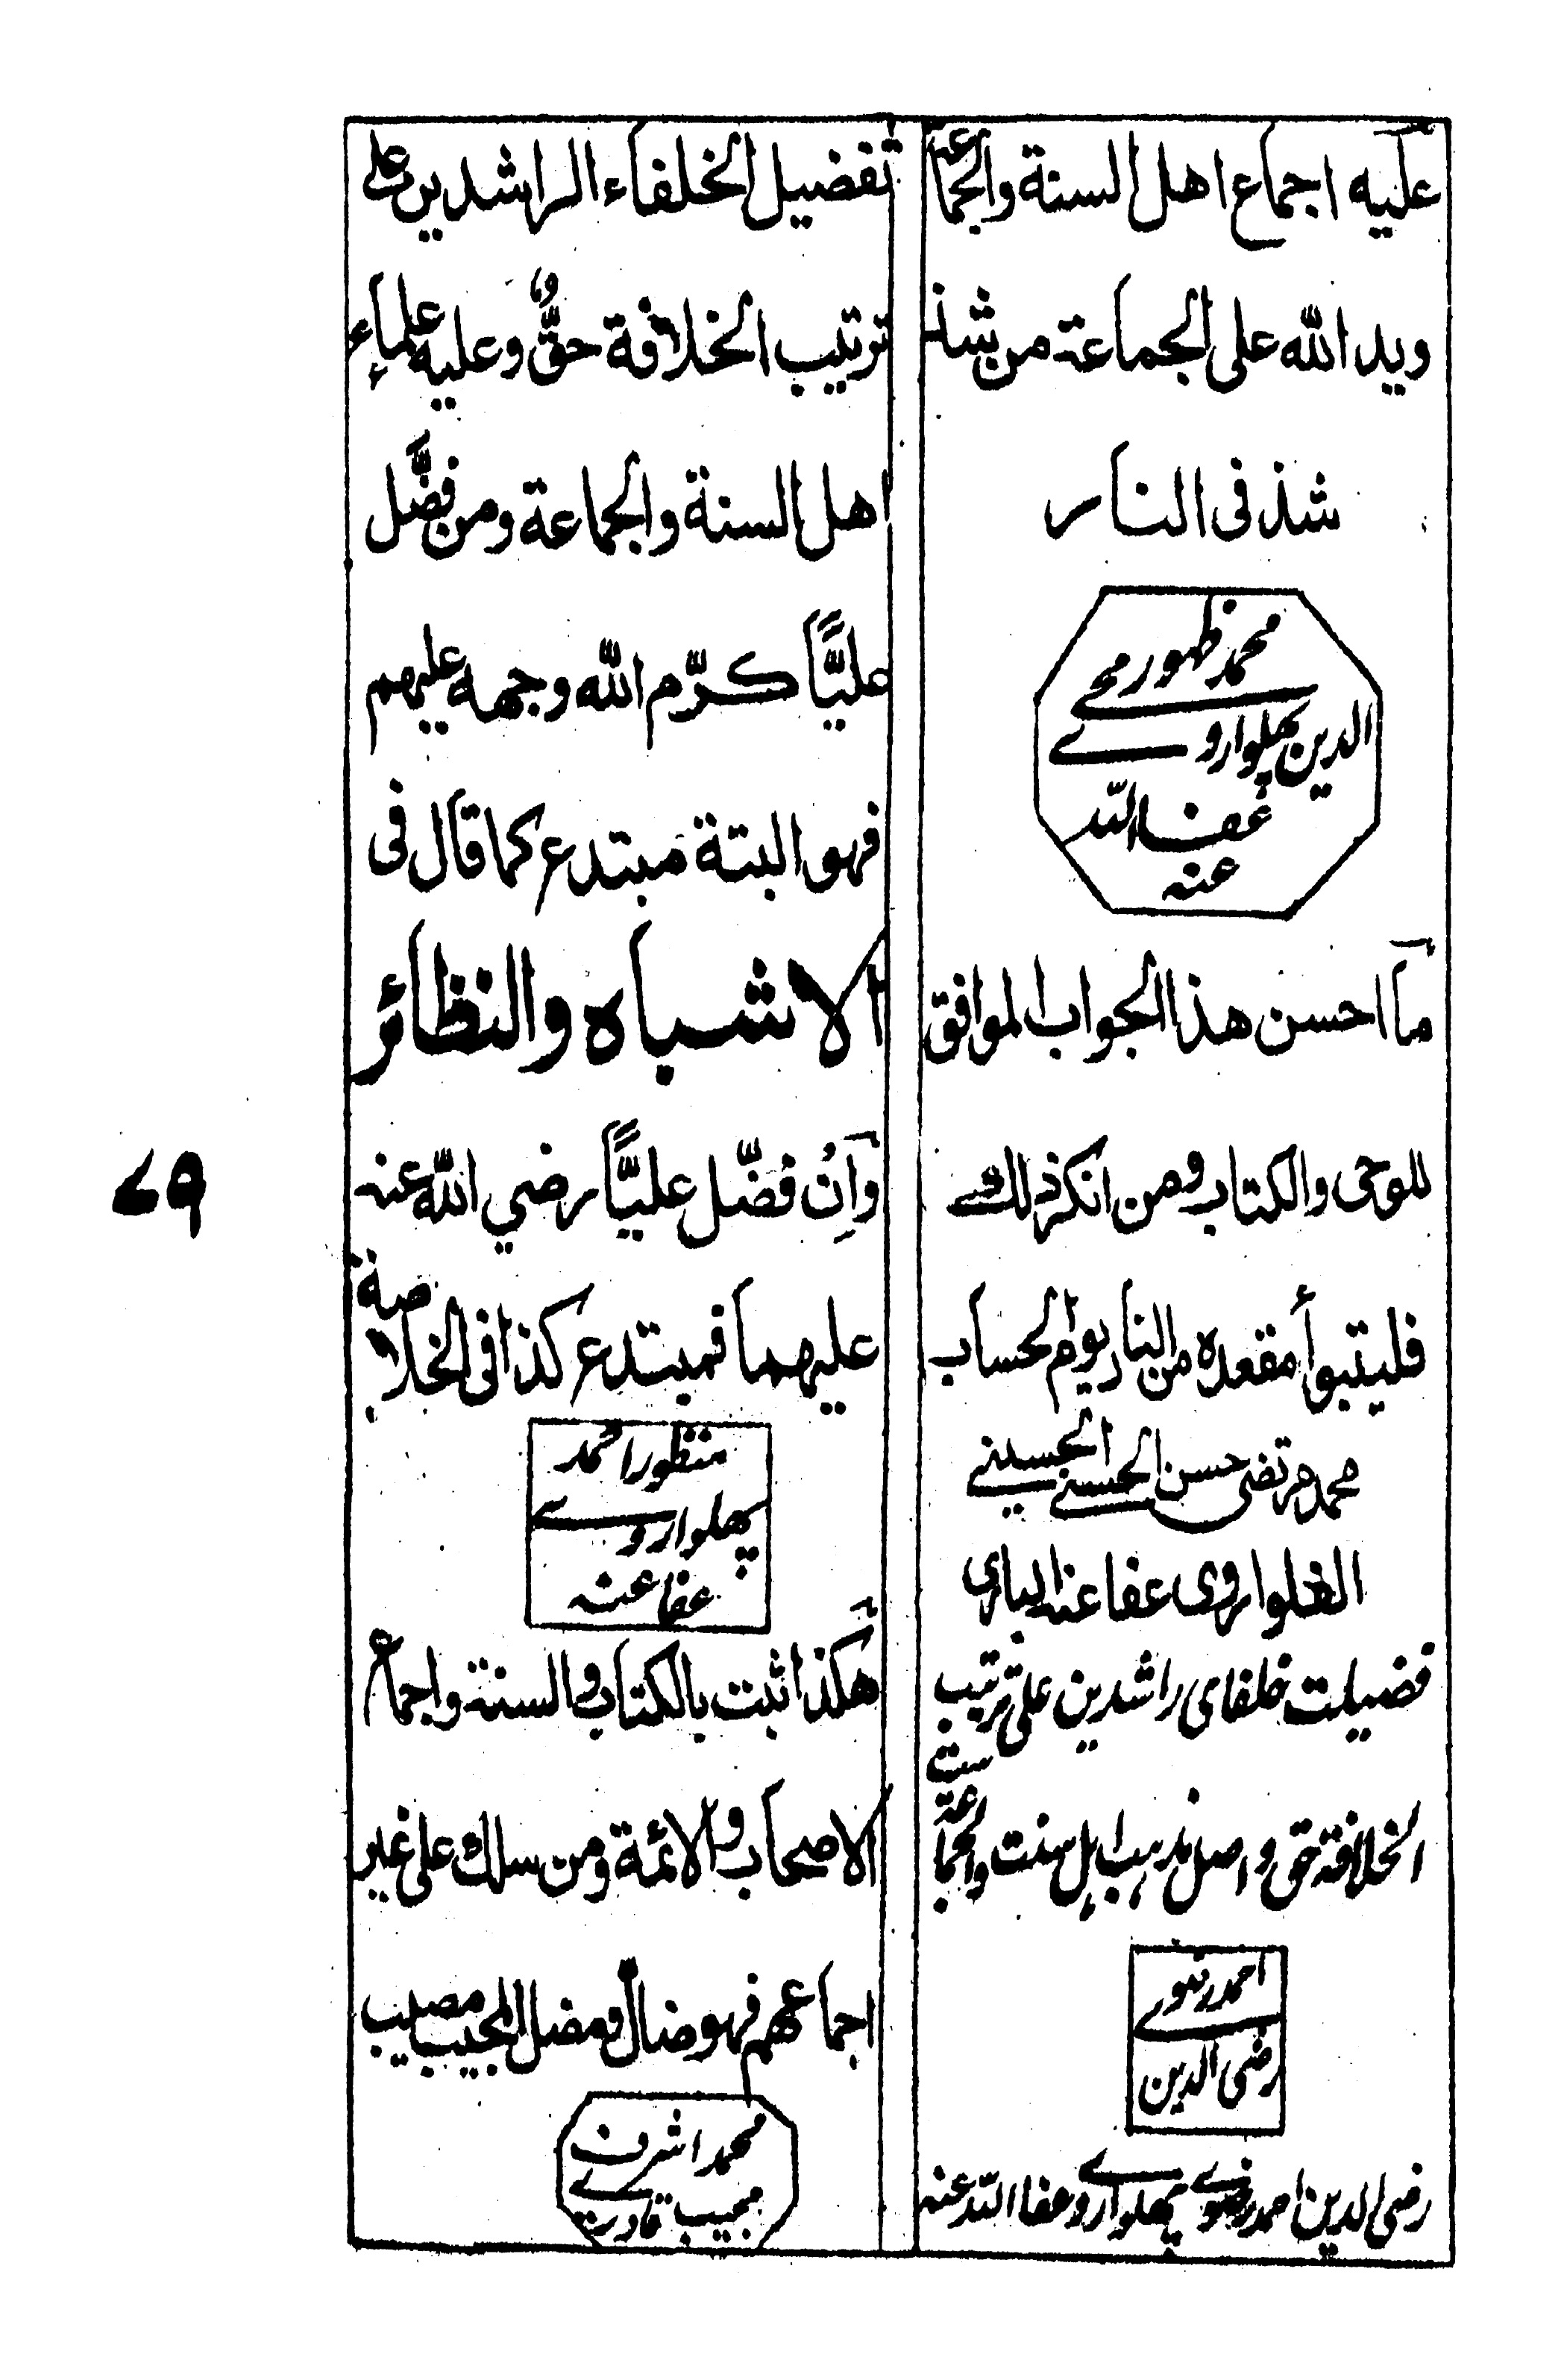 عليه اجماع اهل السنة والجماعة
ويد الله على الجماعة من شذ
شذ فى النار
محمد ظهور محے
الدين پهلوارو ے
عفا اللہ
عنہ
ما احسن هذا الجواب الموافق
للوحى والكتاب ومن انكر ذلك
فليتبوأ مقعده من النار يوم الحساب
محمد مرتضى حسن الحسنے الحسينے
الفلواروى عفا عنه البارى
فضیلت خلفای راشدین علی ترتیب
الخلافة حق و اصل مذہب اہل سنت والجماعة ست
رضی الدین
رضی الدین احمد رضوے پھلواروے عفا اللہ عنہ
تفضيل الخلفاء الراشدين على
ترتيب الخلافة حقٌّ وعليه علماء
اهل السنة والجماعة ومن فضَّل
عليًّا كرّم الله وجهه عليهم
فهو البتة مبتدع كما قال فى
الاشباه والنظائر
وَاِنْ فضّل عليًّا رضي الله عنه
عليهما فمبتدع كذا فى الخلاصة
منظور احمد
پهلوارو ے
عفا عنہ
هكذا ثبت بالكتاب والسنة واجماع
الاصحاب والائمة ومن سلك على غير
اجماعهم فهو ضال ومضل المجيب مصيب
محمد اشرف
مجیب قادرے
۷۹